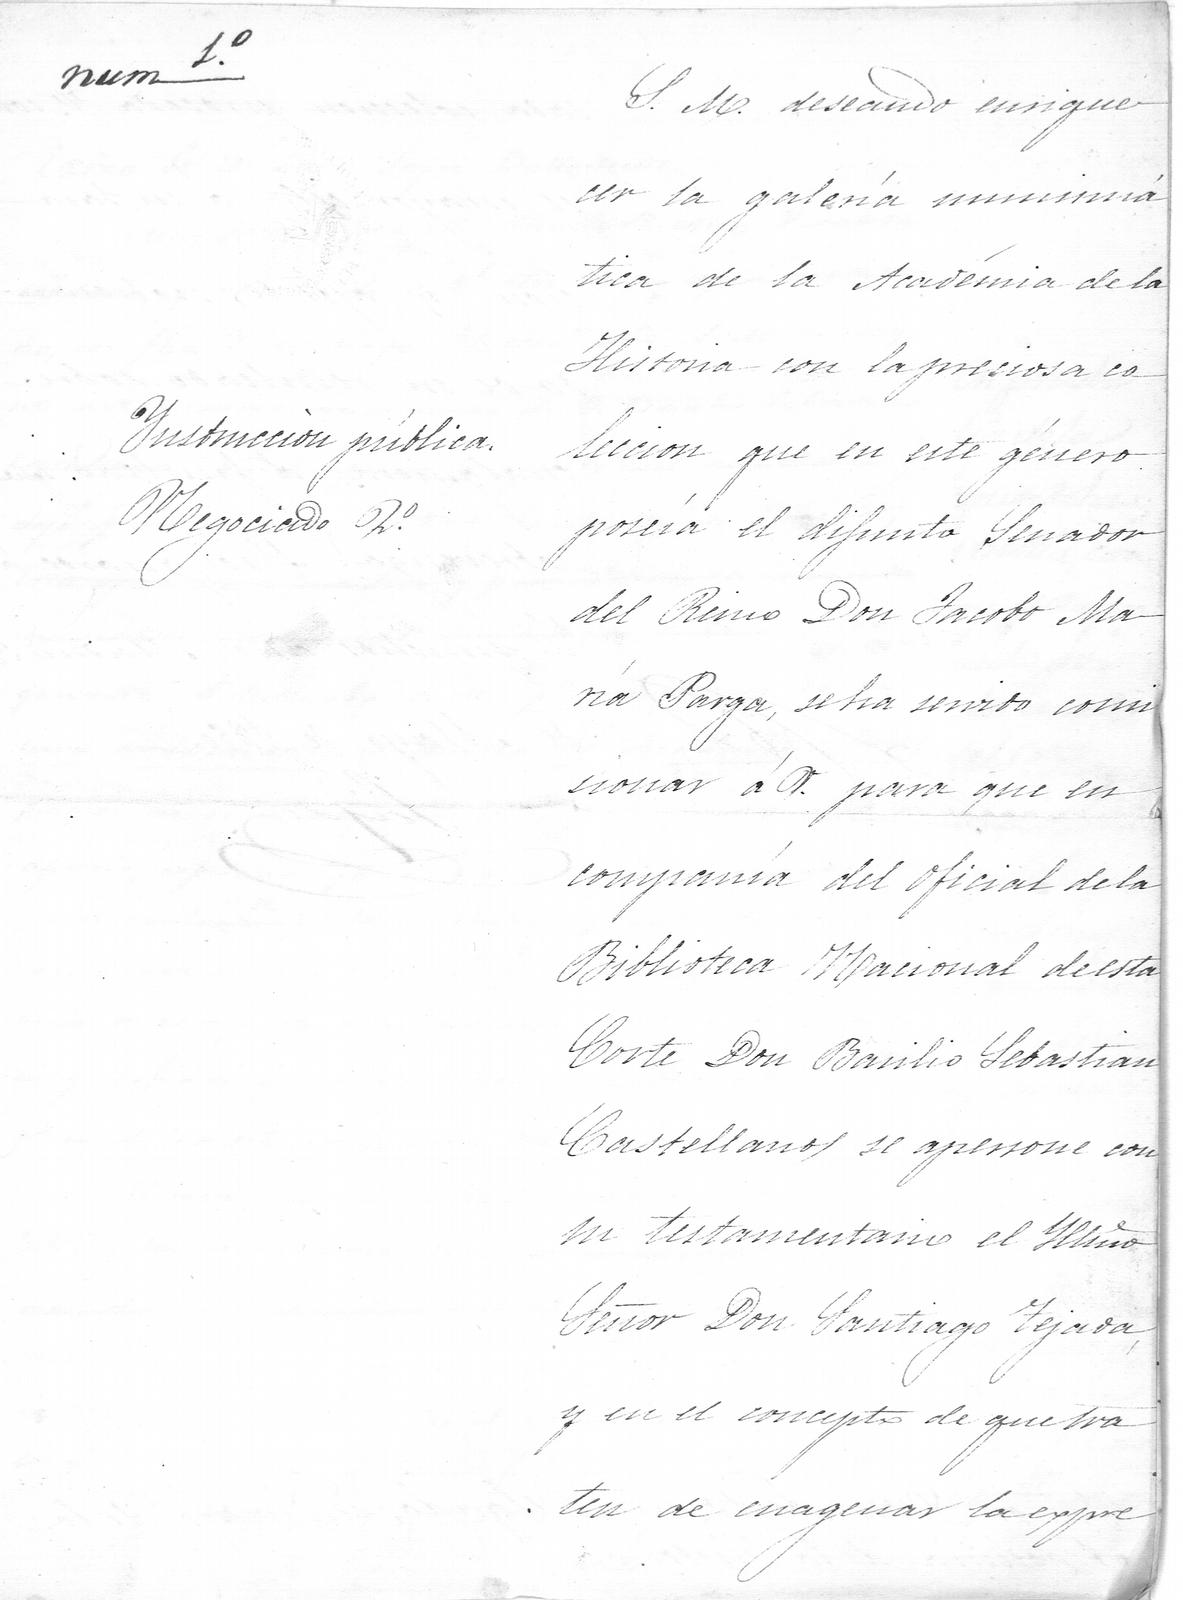 num 1.º
Instruccion pública.
Negociado 2º.
S. M. deseando enrique
cer la galería numismá
tica de la Académia de la
Historia con la preciosa co
leccion que en este género
poseía el difunto Senador
del Reino Don Jacobo Ma
ría Parga, se ha servido comi
sionar á V. para que en
compañía del oficial de la
Biblioteca Nacional de esta
Corte Don Basilio Sebastian
Castellanos se apersone con
su testamentario el Yllmo
Señor Don Santiago Tejada,
y en el concepto de que tra
ten de enagenar la expre